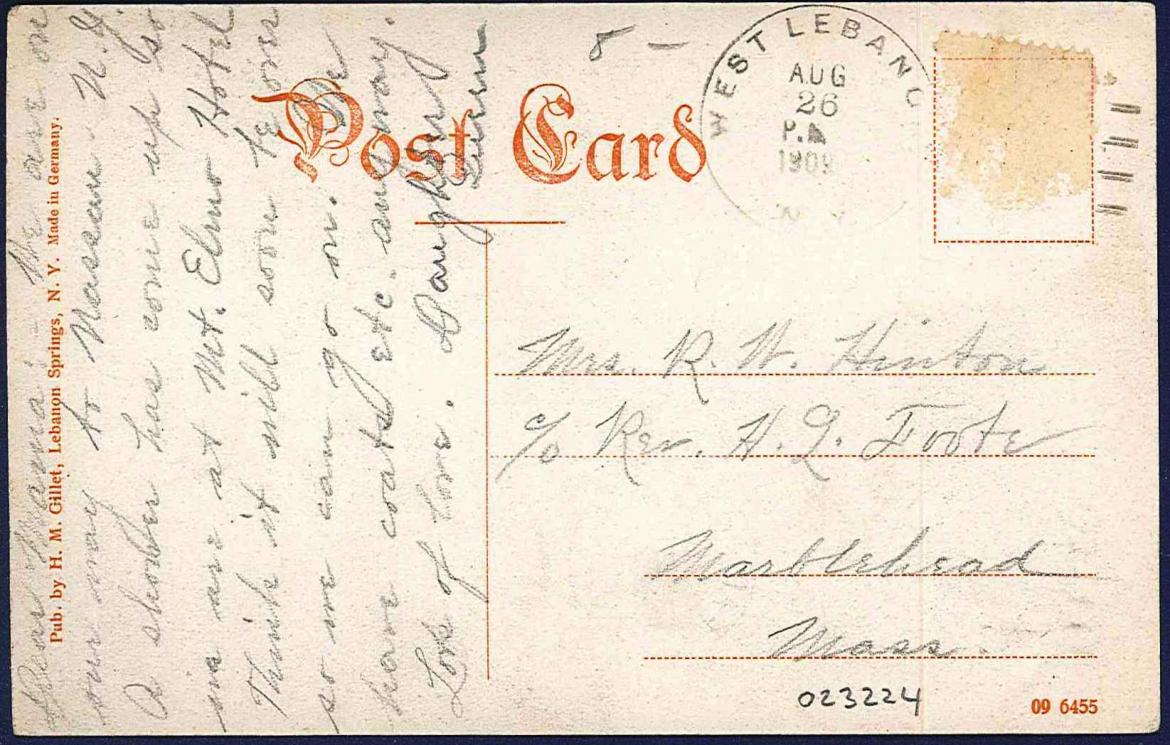 Post Card
WEST LEBANO
AUG
26
P.M.
1909
N.Y.
Pub. by H. M. Gillet, Lebanon Springs, N. Y. Made in Germany.
Dear Mama: We are on
our way to Nassau N.Y.
A shower has come up so
we are at Mt. Elmo Hotel
Think it will soon be over
so we can go on. We
have coats etc. any way.
Lots of love. Daughter
Mrs. R. W. Hinton
c/o Rev. H. L. Foote
Marblehead
Mass.
023224
09 6455